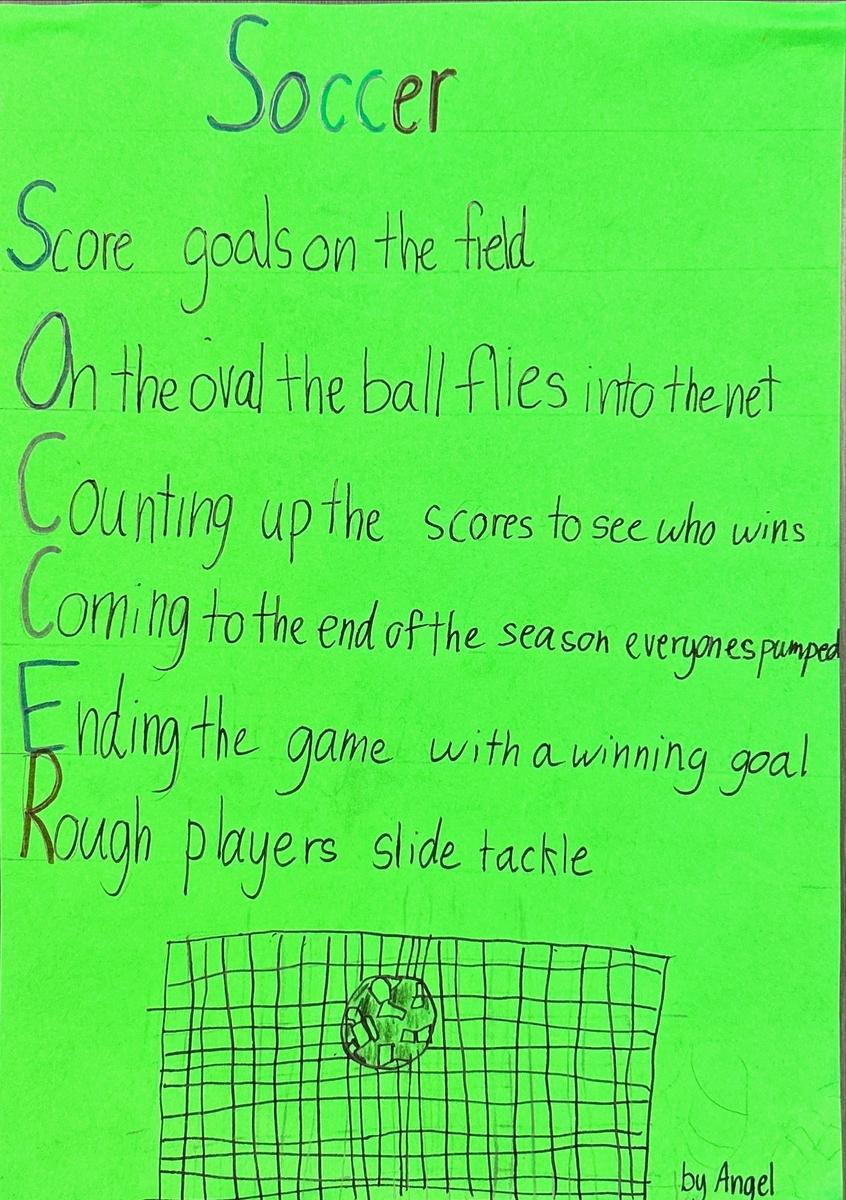 Soccer
Score goals on the field
On the oval the ball flies into the net
Counting up the scores to see who wins
Coming to the end of the season everyones pumped
Ending the game with a winning goal
Rough players slide tackle
by Angel